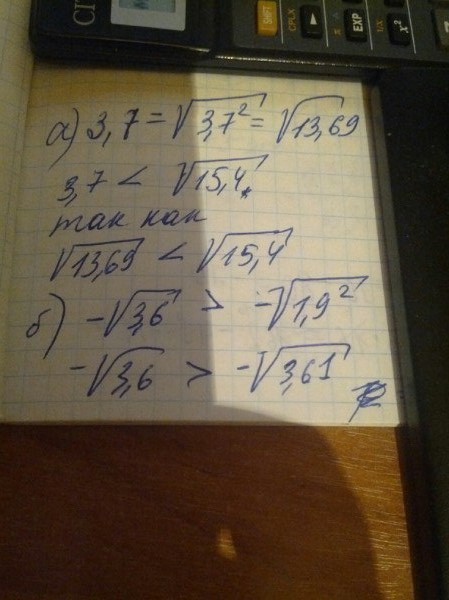 CIT
Shift
CPLX
EXP
1/x
x²
а) 3,7 = √3,7² = √13,69
3,7 < √15,4,
так как
√13,69 < √15,4
б) -√3,6 > -√1,9²
-√3,6 > -√3,61